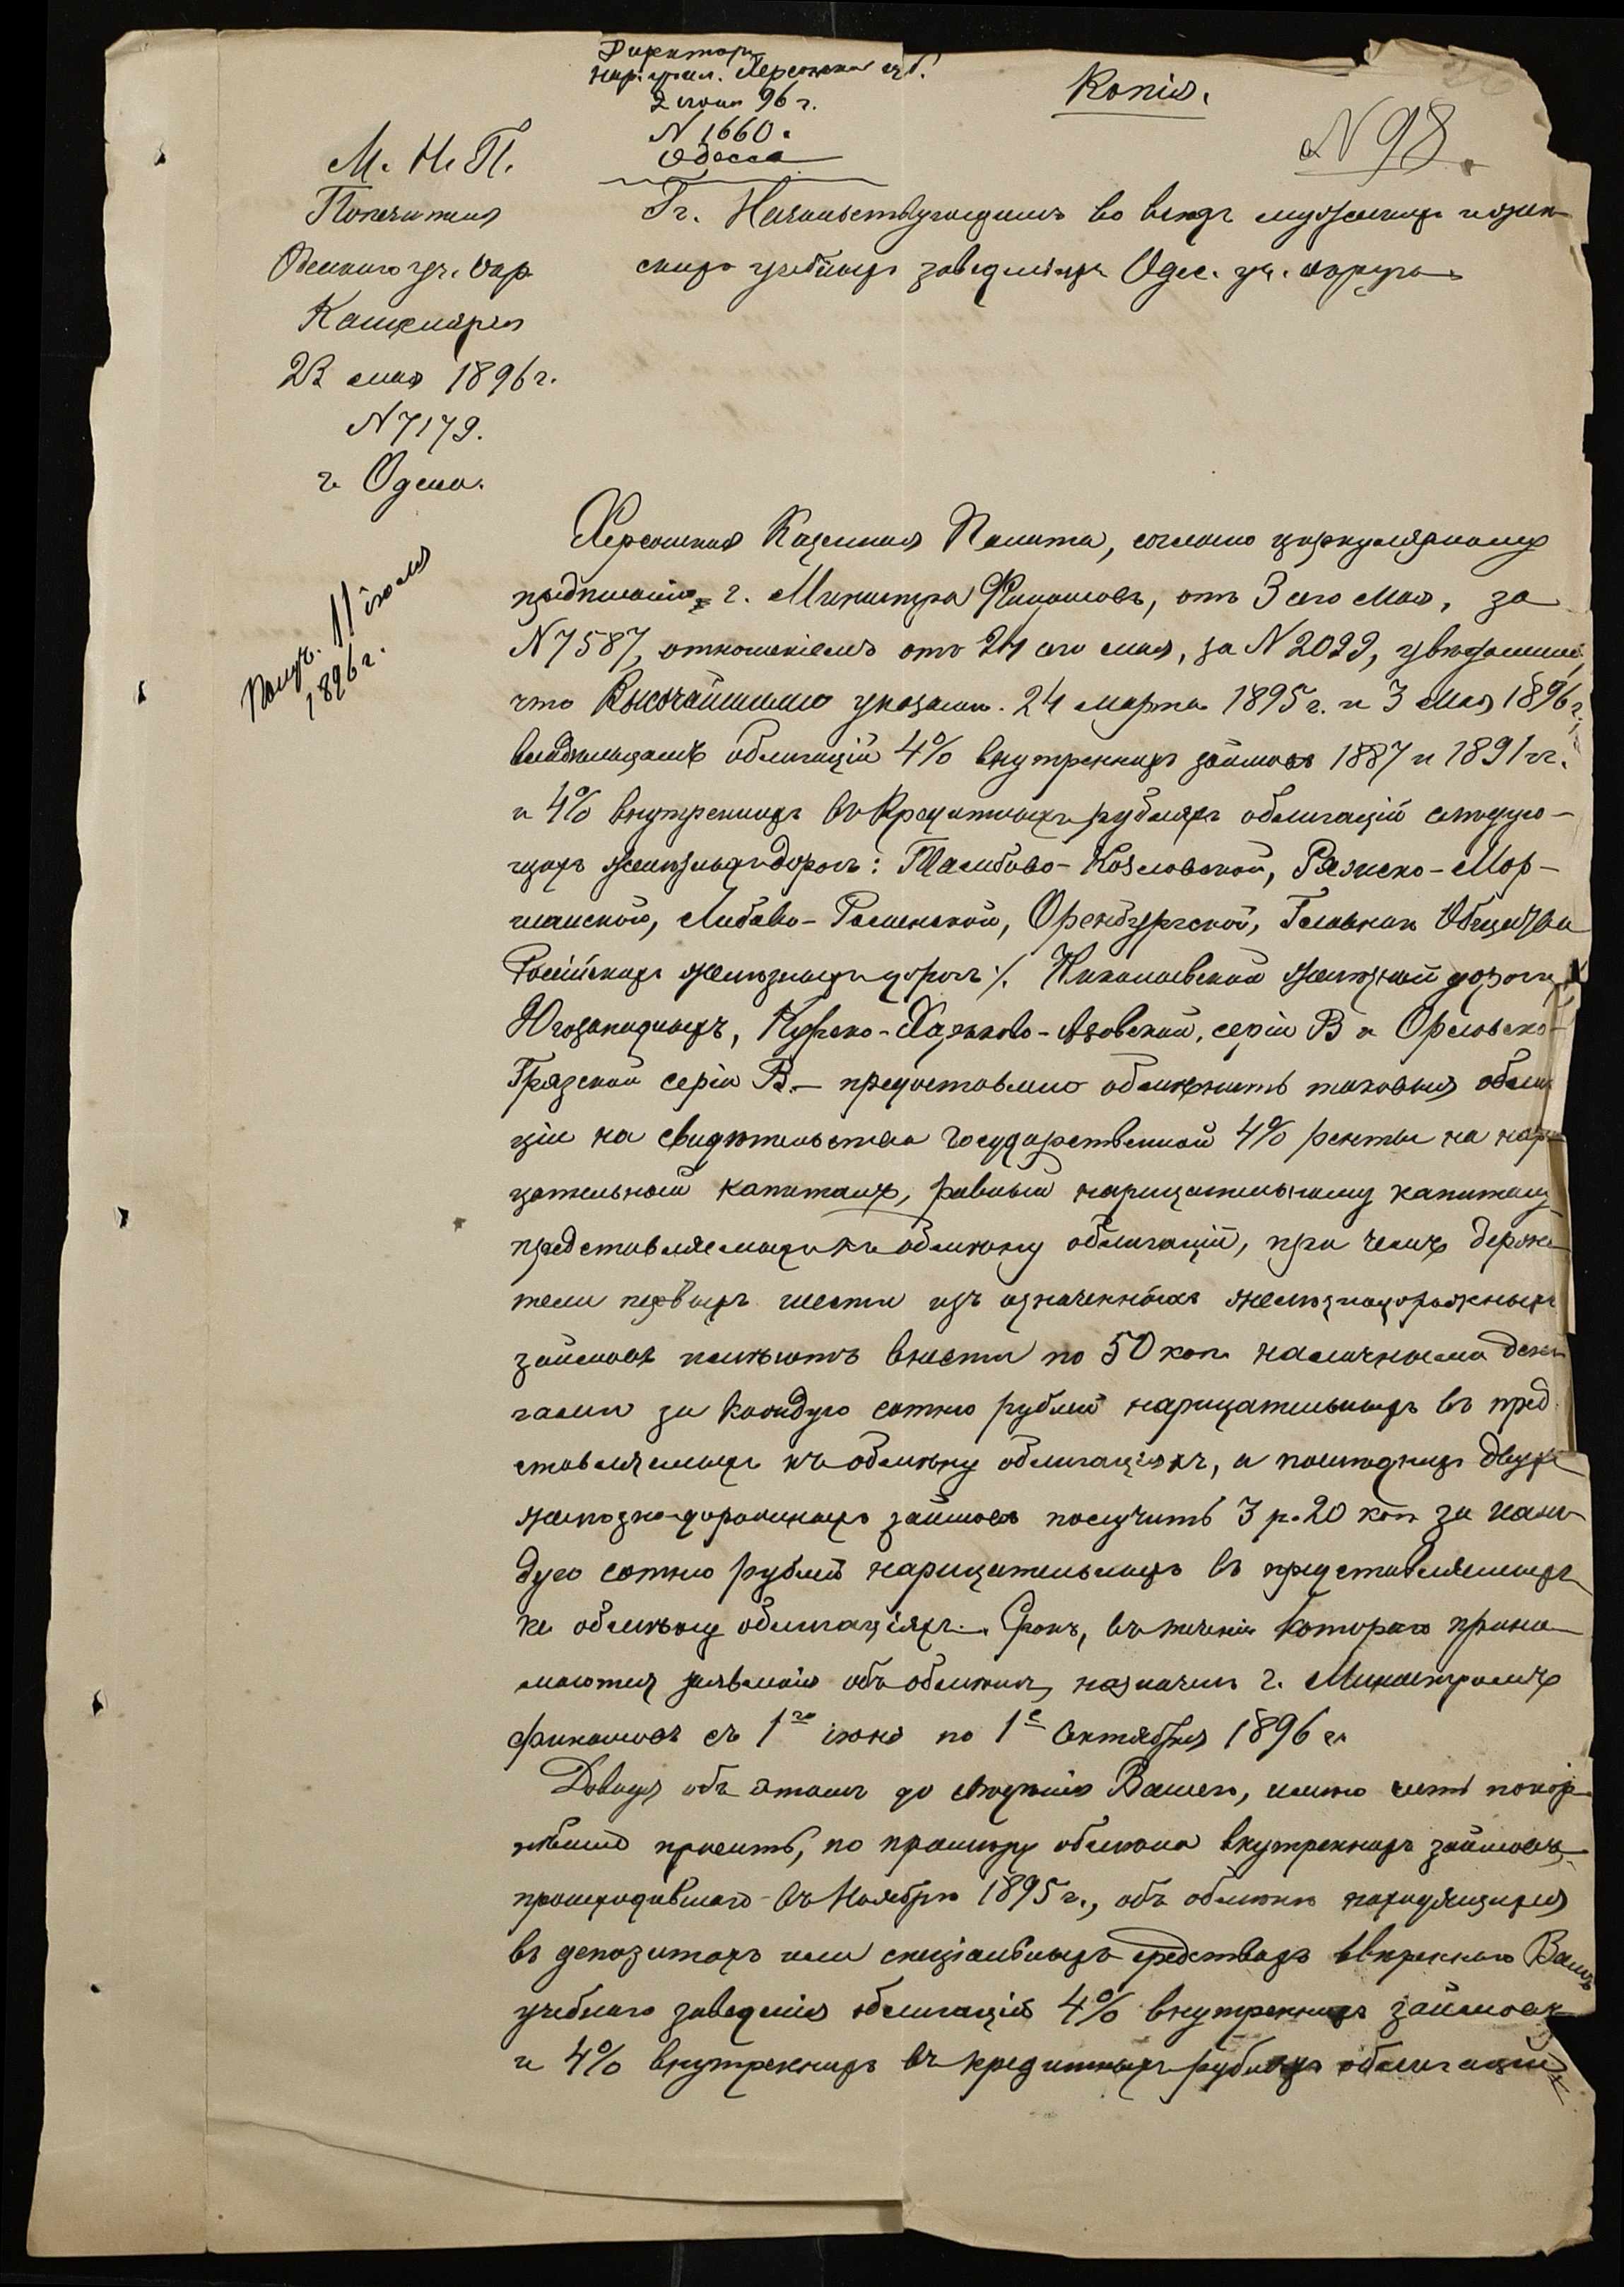 Директоръ
нар. учил. Херсонской губ.
2 іюня 96 г.
N 1660.
Одесса
Копія.
N 98.
М. Н. П.
Попечителя
Одесскаго уч. Окр.
Канцелярія
23 мая 1896 г.
N 7179.
г. Одесса.
Получ. 11 іюля
1896 г.
Гг. Начальствующимъ во всѣхъ мужскихъ и жен-
скихъ учебныхъ заведеніяхъ Одес. уч. округа
Херсонская Казенная Палата, согласно циркулярному
предписанію г. Министра Финансовъ, отъ 3 сего Мая, за
N 7587, отношеніемъ отъ 24 сего мая, за N 2099, увѣдомила,
что Высочайшими указами 24 марта 1895 г. и 3 Мая 1896 г.
владѣльцамъ облигацій 4% внутреннихъ займовъ 1887 и 1891 гг.
и 4% внутреннихъ въ кредитныхъ рубляхъ облигацій слѣдую-
щихъ желѣзныхъ дорогъ: Тамбово-Козловской, Ряжско-Мор-
шанской, Либаво-Роменской, Оренбургской, Главнаго Общества
Россійскихъ желѣзныхъ дорогъ /. Николаевской желѣзной дороги,
Югозападныхъ, Курско-Харьково-Азовской, серіи В и Орловско-
Грязской серіи В. — предоставлено обмѣнять таковыя облига
ціи на свидѣтельства Государственной 4% ренты на нари
цательный капиталъ, равный нарицательному капиталу
представляемыхъ къ обмѣну облигацій, при чемъ держа
тели первыхъ шести изъ означенныхъ желѣзнодорожныхъ
займовъ имѣютъ внести по 50 коп. наличными день
гами за каждую сотню рублей нарицательныхъ въ пред
ставляемыхъ къ обмѣну облигаціяхъ, а послѣднихъ двухъ
желѣзно-дорожныхъ займовъ получить 3 р. 20 коп. за каж
дую сотню рублей нарицательныхъ въ представляемыхъ
къ обмѣну облигаціяхъ. Срокъ, въ теченіи котораго прини
маются заявленія объ обмѣнѣ, назначенъ г. Министромъ
финансовъ съ 1го іюня по 1е Октября 1896 г.
Доводя объ этомъ до свѣдѣнія Вашего, имѣю честь покор
нѣйше просить, по примѣру обмѣна внутреннихъ займовъ,
происходившаго въ Ноябрѣ 1895 г., объ обмѣнѣ находящихся
въ депозитахъ или спеціальныхъ средствахъ ввѣреннаго Вамъ
учебнаго заведенія облигацій 4% внутреннихъ займовъ
и 4% внутреннихъ въ кредитныхъ рубляхъ облигацій